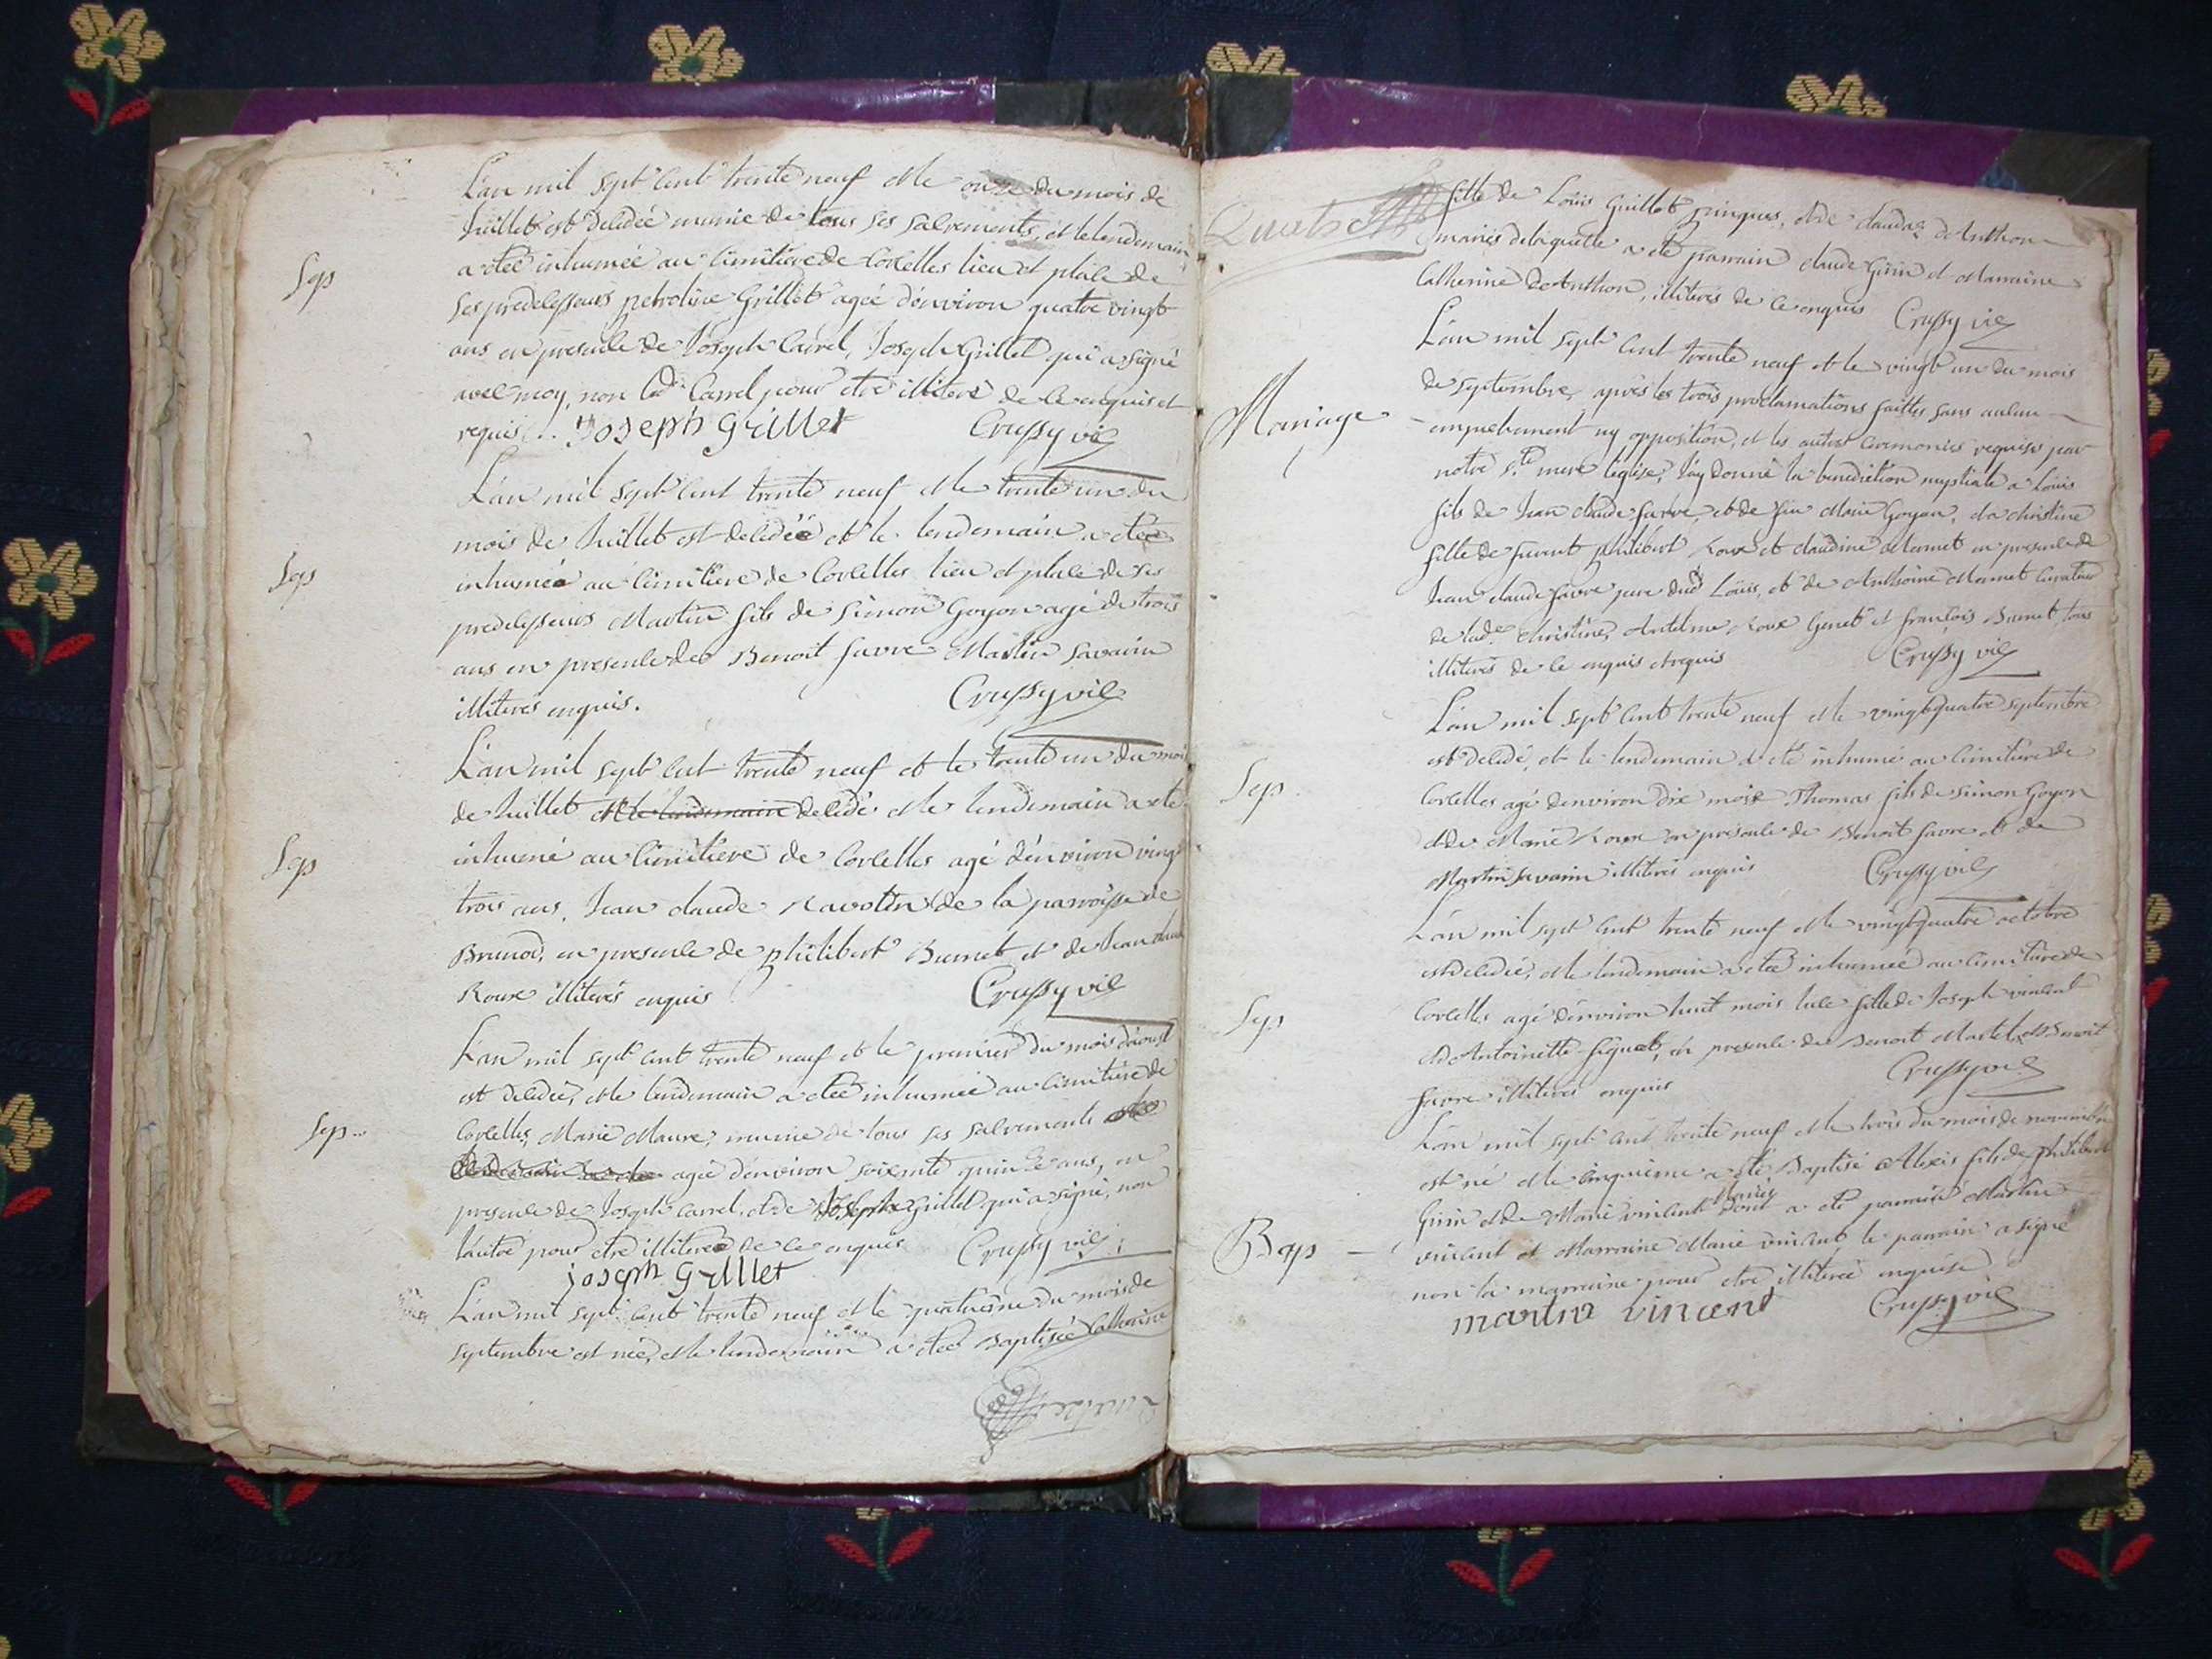 L'an mil sept cent trente neuf et le onze du mois de
Juillet est decedée munie de tous ses sacrements, et le lendemain
Sep
a eteé inhumée au cimitiere de Corcelles lieu et place de
ses predecesseurs petroline Grillet ageé d'environ quatre vingt
ans en presence de Joseph Carrel, Joseph Grillet qui a signé
avec moy, non led. Carrel pour etre illiteré de ce enquis et
requis. Joseph Grillet Crussy vic
L'an mil sept cent trente neuf et le trente un du
mois de Juillet est decedée et le lendemain a eteé
Sep
inhumée au cimitiere de Corcelles lieu et place de ses
predecesseurs Martin fils de Simon Goyon agé de trois
ans en presence de Benoit favre Martin Savarin
illiterés enquis. Crussy vic
L'an mil sept cent trente neuf et le trente un du mois
de Juillet et le lendemain decedé et le lendemain a eté
Sep
inhumé au cimitiere de Corcelles agé d'environ vingt
trois ans, Jean claude Ravotin de la paroisse de
Brenod, en presence de philibert Burnet et de Jean claude
Roux illiterés enquis Crussy vic
L'an mil sept cent trente neuf et le premier du mois d'aoust
est decedée, et le lendemain a eteé inhumée au cimitiere de
Sep
Corcelles, Marie Maure, munie de tous ses sacrements
ageé d'environ soixante quinze ans, en
presence de Joseph Carrel, et de Joseph Grillet qui a signé, non
l'autre pour etre illiteré de ce enquis Crussy vic
joseph Grillet
L'an mil sept cent trente neuf et le quatriesme du mois de
septembre est neé, et le lendemain a eteé Baptisée Catherine
fille de Loüis Guillot pinques, et de claudaz de Anthon
mariés de laquelle a eté parrain claude Girin et Marraine
Catherine de Anthon, illiterés de ce enquis Crussy vic
L'an mil sept cent trente neuf et le vingt un du mois
Mariage
de septembre, après les trois proclamations faittes sans aucun
empechement ny opposition, et les autres ceremonies requises par
notre Ste mere l'eglise, J'ay donné la benediction nuptiale a Loüis
fils de Jean claude favre, et de feu Marie Goyon, et a christine
fille de furent philibert Roux et claudine in presence de
Jean claude favre pere dud Loüis, et de Anthoine Monnet curateur
de lade christine, Antelme Roux Genet et françois Burnet, tous
illiterés de ce enquis et requis Crussy vic
L'an mil sept cent trente neuf et le vingt quatre septembre
est decedé, et le lendemain a eté inhumé au cimitiere de
Sep
Corcelles agé d'environ dix mois Thomas fils de simon Goyon
et de Marie Roux en presence de Benoit favre et de
Martin Savarin illiterés enquis Crussy vic
L'an mil sept cent trente neuf et le vingt quatre octobre
est decedée, et le lendemain a eteé inhumée au cimitiere de
Sep
Corcelles agé d'environ huit mois fille de Joseph vincent
et d'Antoinette en presence de Benoit Martel et Benoit
favre illiterés enquis Crussy vic
L'an mil sept cent trente neuf et le trois du mois de novembre
est né et le cinquieme a eté Baptisé Alexis fils de philibert
Girin et de Marie vincent mariés dont a eté parrain Martin
Bap
vincent et Marraine Marie vincent le parrain a signé
non la marraine pour etre illiterée enquise
martin vincent Crussy vic